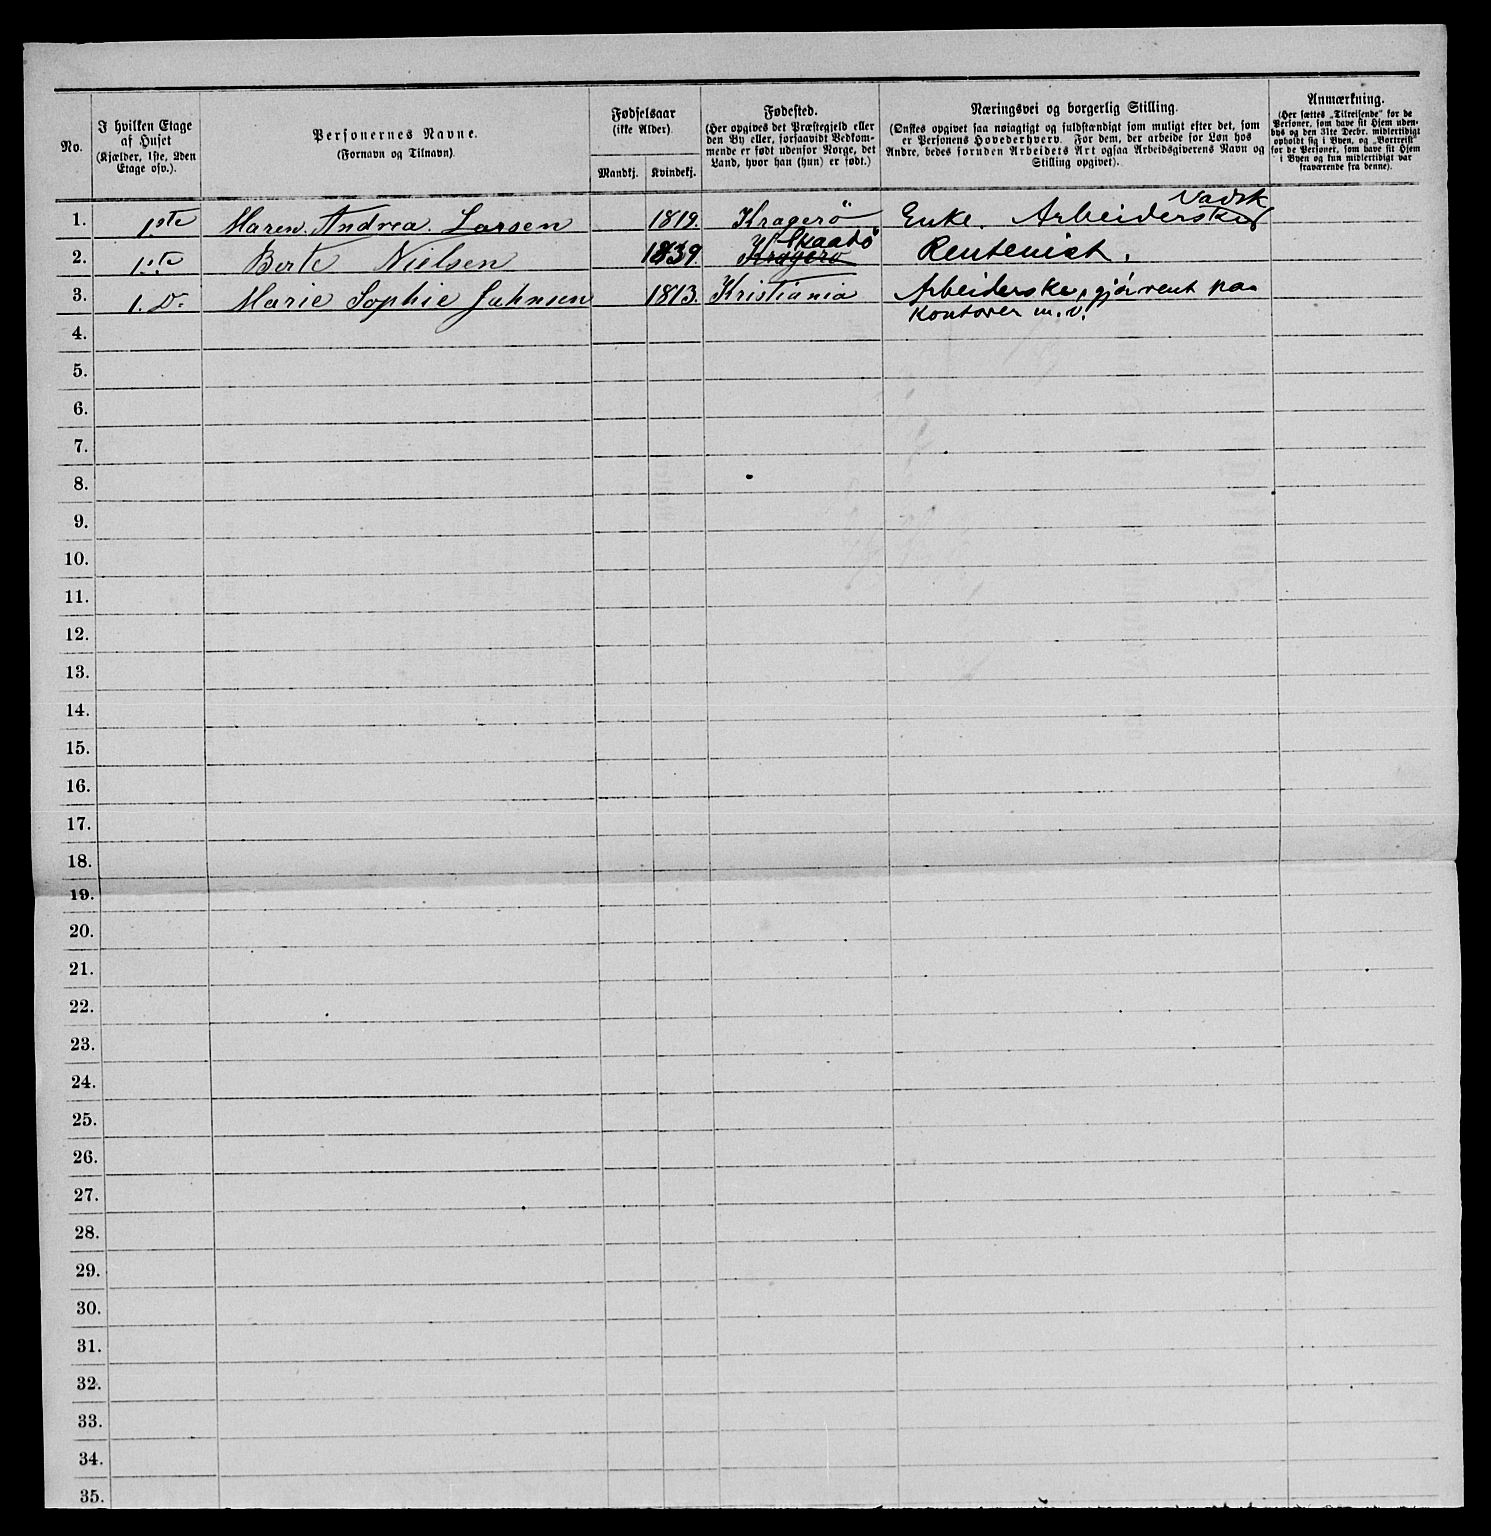 No.
I hvilken Etage
af Huset
(Kjælder, 1ste, 2den
Etage osv.).
Personernes Navne.
(Fornavn og Tilnavn).
Fødselsaar
(ikke Alder).
Mandkj.
Kvindekj.
Fødested.
(Her opgives det Præstegjeld eller
den By eller, forsaavidt Vedkom-
mende er født udenfor Norge, det
Land, hvor han (hun) er født.)
Næringsvei og borgerlig Stilling.
(Ønskes opgivet saa nøiagtigt og fuldstændigt som muligt efter det, som
er Personens Hovederhverv. For dem, der arbeide for Løn hos
Andre, bedes foruden Arbeidets Art ogsaa Arbeidsgiverens Navn og
Stilling opgivet).
Anmærkning.
(Her sættes „Tilreisende" for de
Personer, som have sit Hjem uden-
bys og den 31te Decbr. midlertidigt
opholdt sig i Byen, og „Bortreist"
for de Personer, som have sit Hjem
i Byen og kun midlertidigt var
fraværende fra denne).
1. 1ste Maren Andrea Larsen 1819. Kragerö Enke. Arbeiderske Vadsk
2. 1ste Berte Nielsen 1839 Kragerö Skaatö Rentenist.
3. 1. D. Marie Sophie Jahnsen 1813. Kristiania Arbeiderske, gjör rent paa
Kontorer m. v.
4.
5.
6.
7.
8.
9.
10.
11.
12.
13.
14.
15.
16.
17.
18.
19.
20.
21.
22.
23.
24.
25.
26.
27.
28.
29.
30.
31.
32.
33.
34.
35.